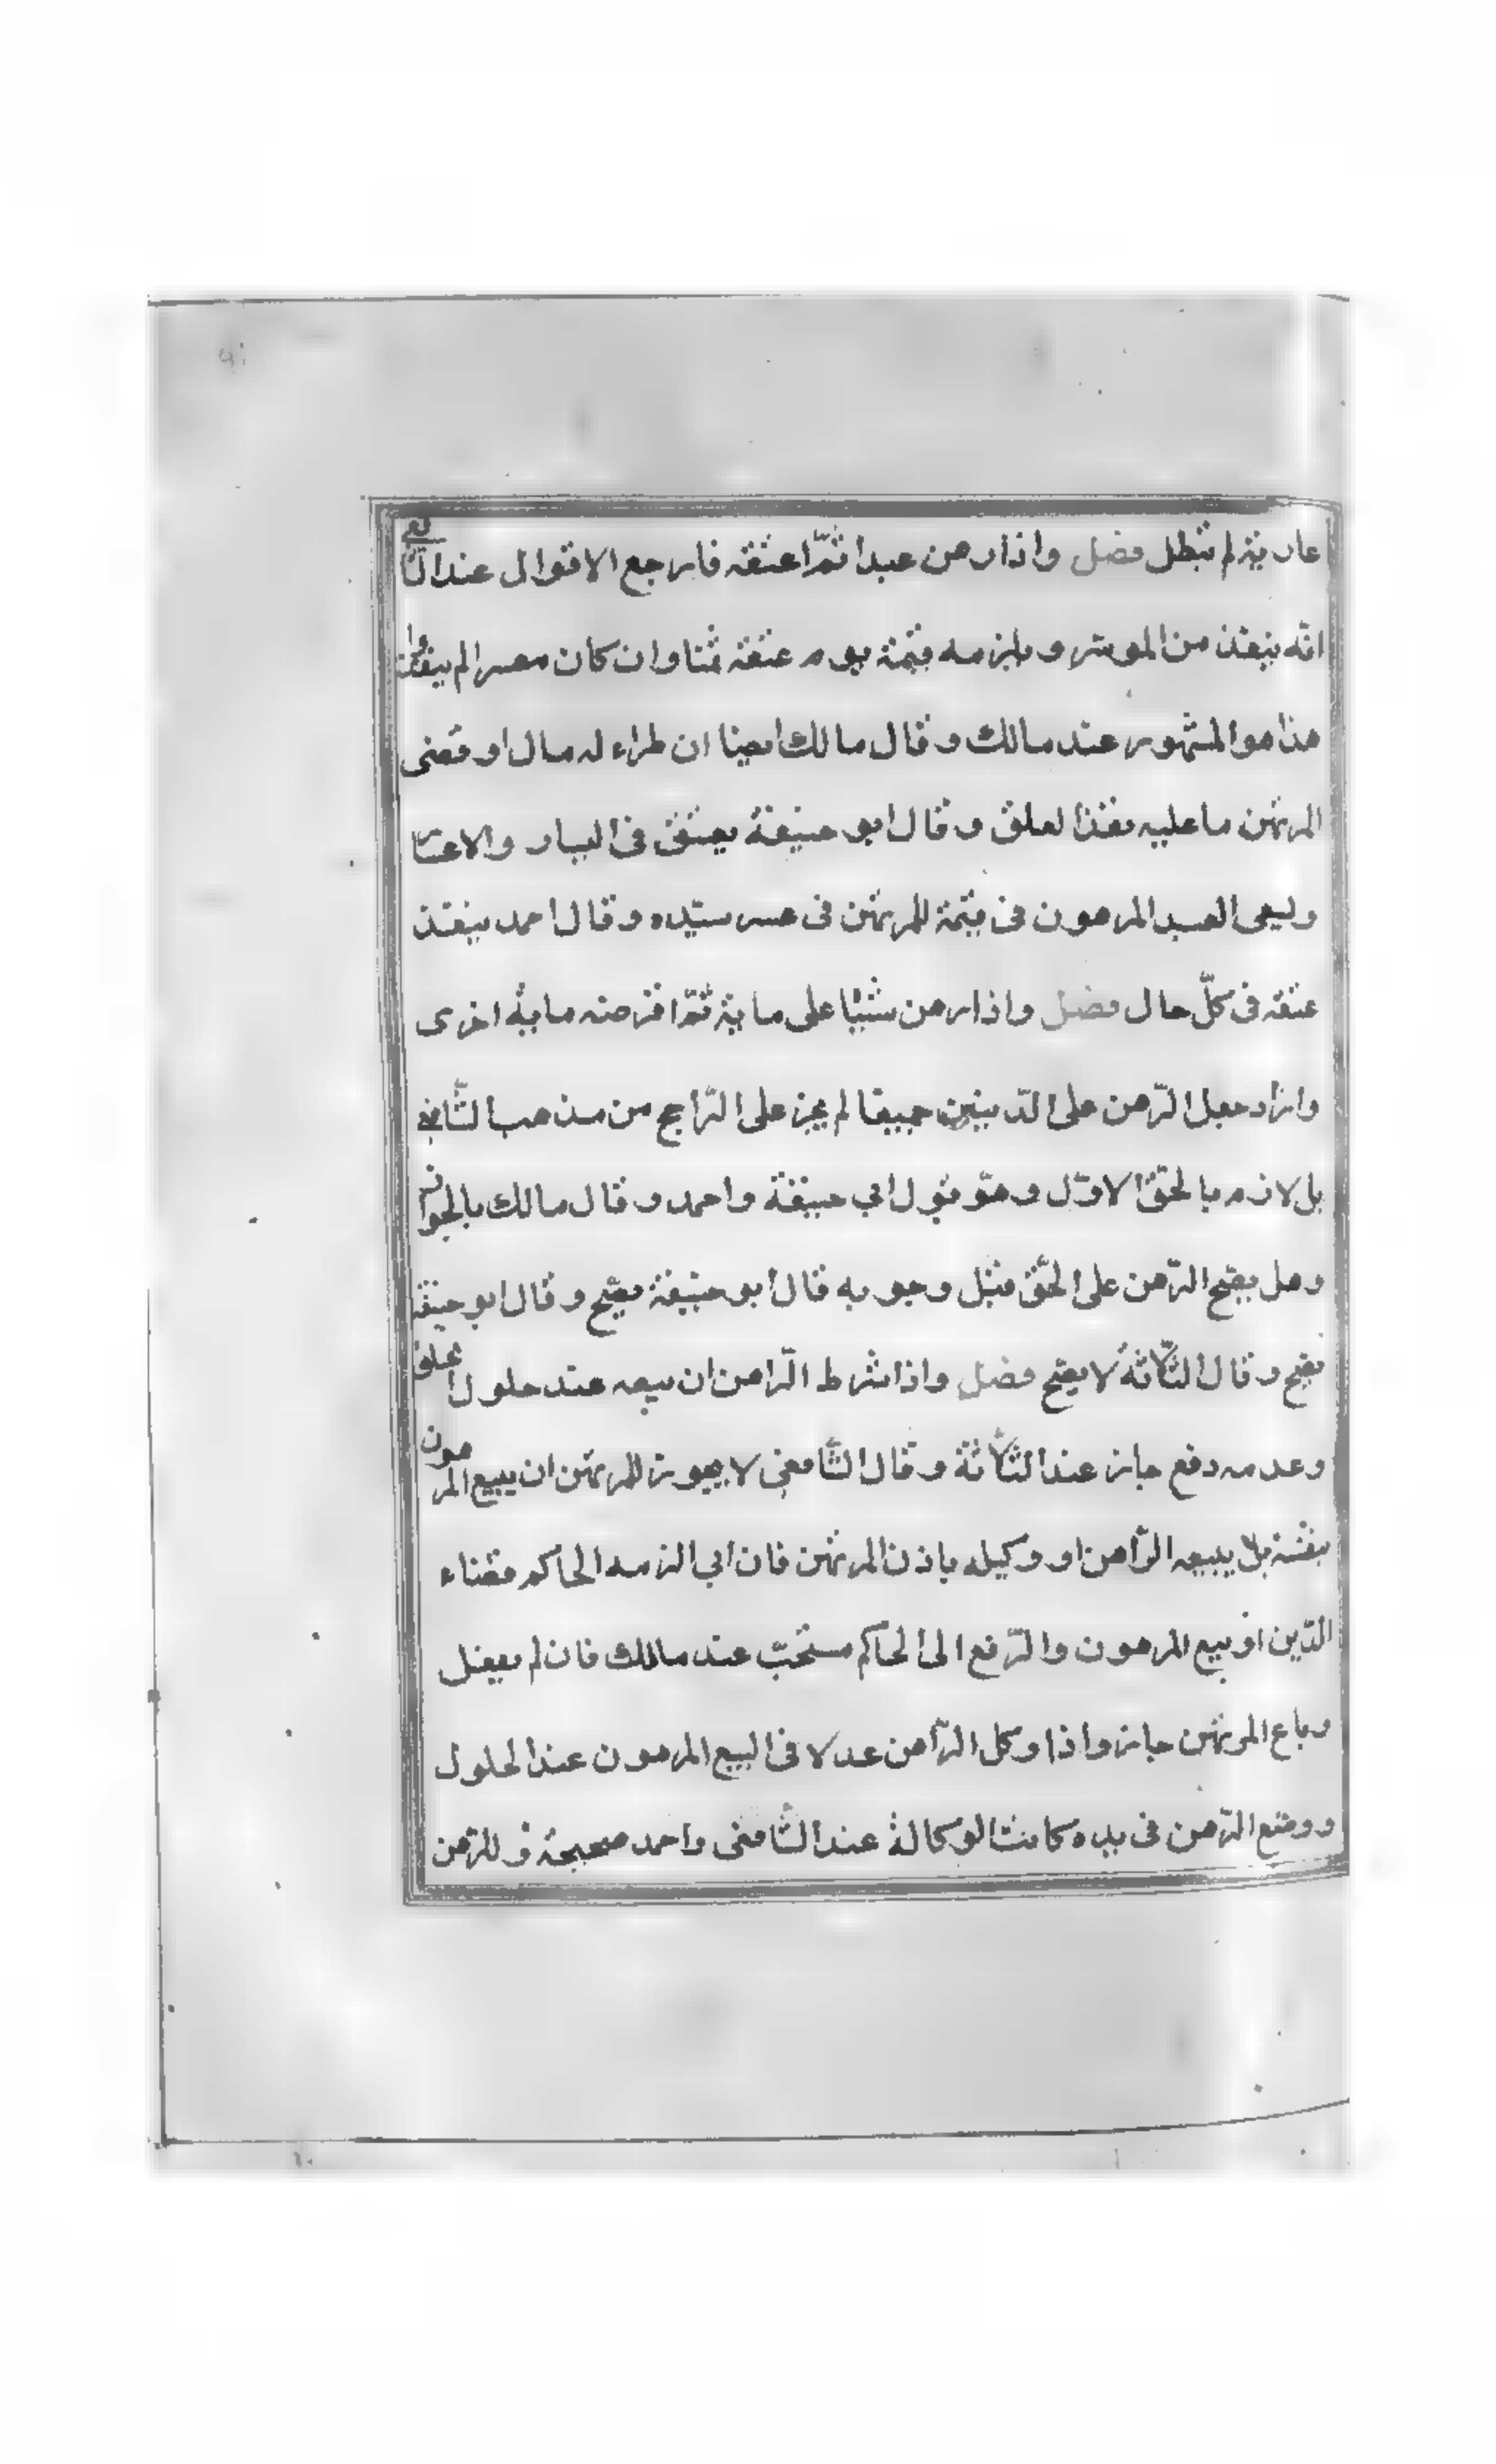 عارية لم تبطل فصل واذا رهن عبدا ثمّ اعتقه فارجع الاقوال عند الشافعي
انّه ينفذ من الموسر ويلزمه قيمة يوم عتقه ثمنا وان كان معسرا لم ينفذ
هذا هو المشهور عند مالك وقال مالك ايضا ان طراء له مال او قضى
المرتهن ما عليه نفذ العلق وقال ابو حنيفة يعتق فى اليسار والاعسار
وليعى العبد المرهون فى قيمة للمرتهن فى عسر سيّده وقال احمد ينفذ
عتقه فى كلّ حال فصل واذا رهن شيئا على ماية ثمّ اقرضه ماية اخرى
واراد جعل الرّهن على الدّينين جميعا لم يجز على الرّاجح من مذهب الشّافعى
بل لازم بالحقّ الاوّل وهو قول ابي حنيفة واحمد وقال مالك بالجواز
وهل يصحّ الرّهن على الحقّ قبل وجوبه قال ابو حنيفة يصحّ وقال ابو حنيفة
يصح وقال الثّلاثة لا يصحّ فصل واذا شرط الرّاهن ان يبيعه عند حلول
وعدمه دفع جايز عند الثّلاثة وقال الشّافعى لا يجوز للمرتهن ان يبيع المرهون
بنفسه بل يبيعه الرّاهن او وكيله باذن المرتهن فان ابي الزمه الحاكم قضاء
الدّين او بيع المرهون والرّفع الى الحاكم مستحبّ عند مالك فان لم يفعل
وباع المرتهن جايز واذا وكل الرّاهن عدلا فى البيع المرهون عند الحلول
ووضع الرّهن فى يده كانت الوكالة عند الشّافعى واحمد صحيحة وللرّهن